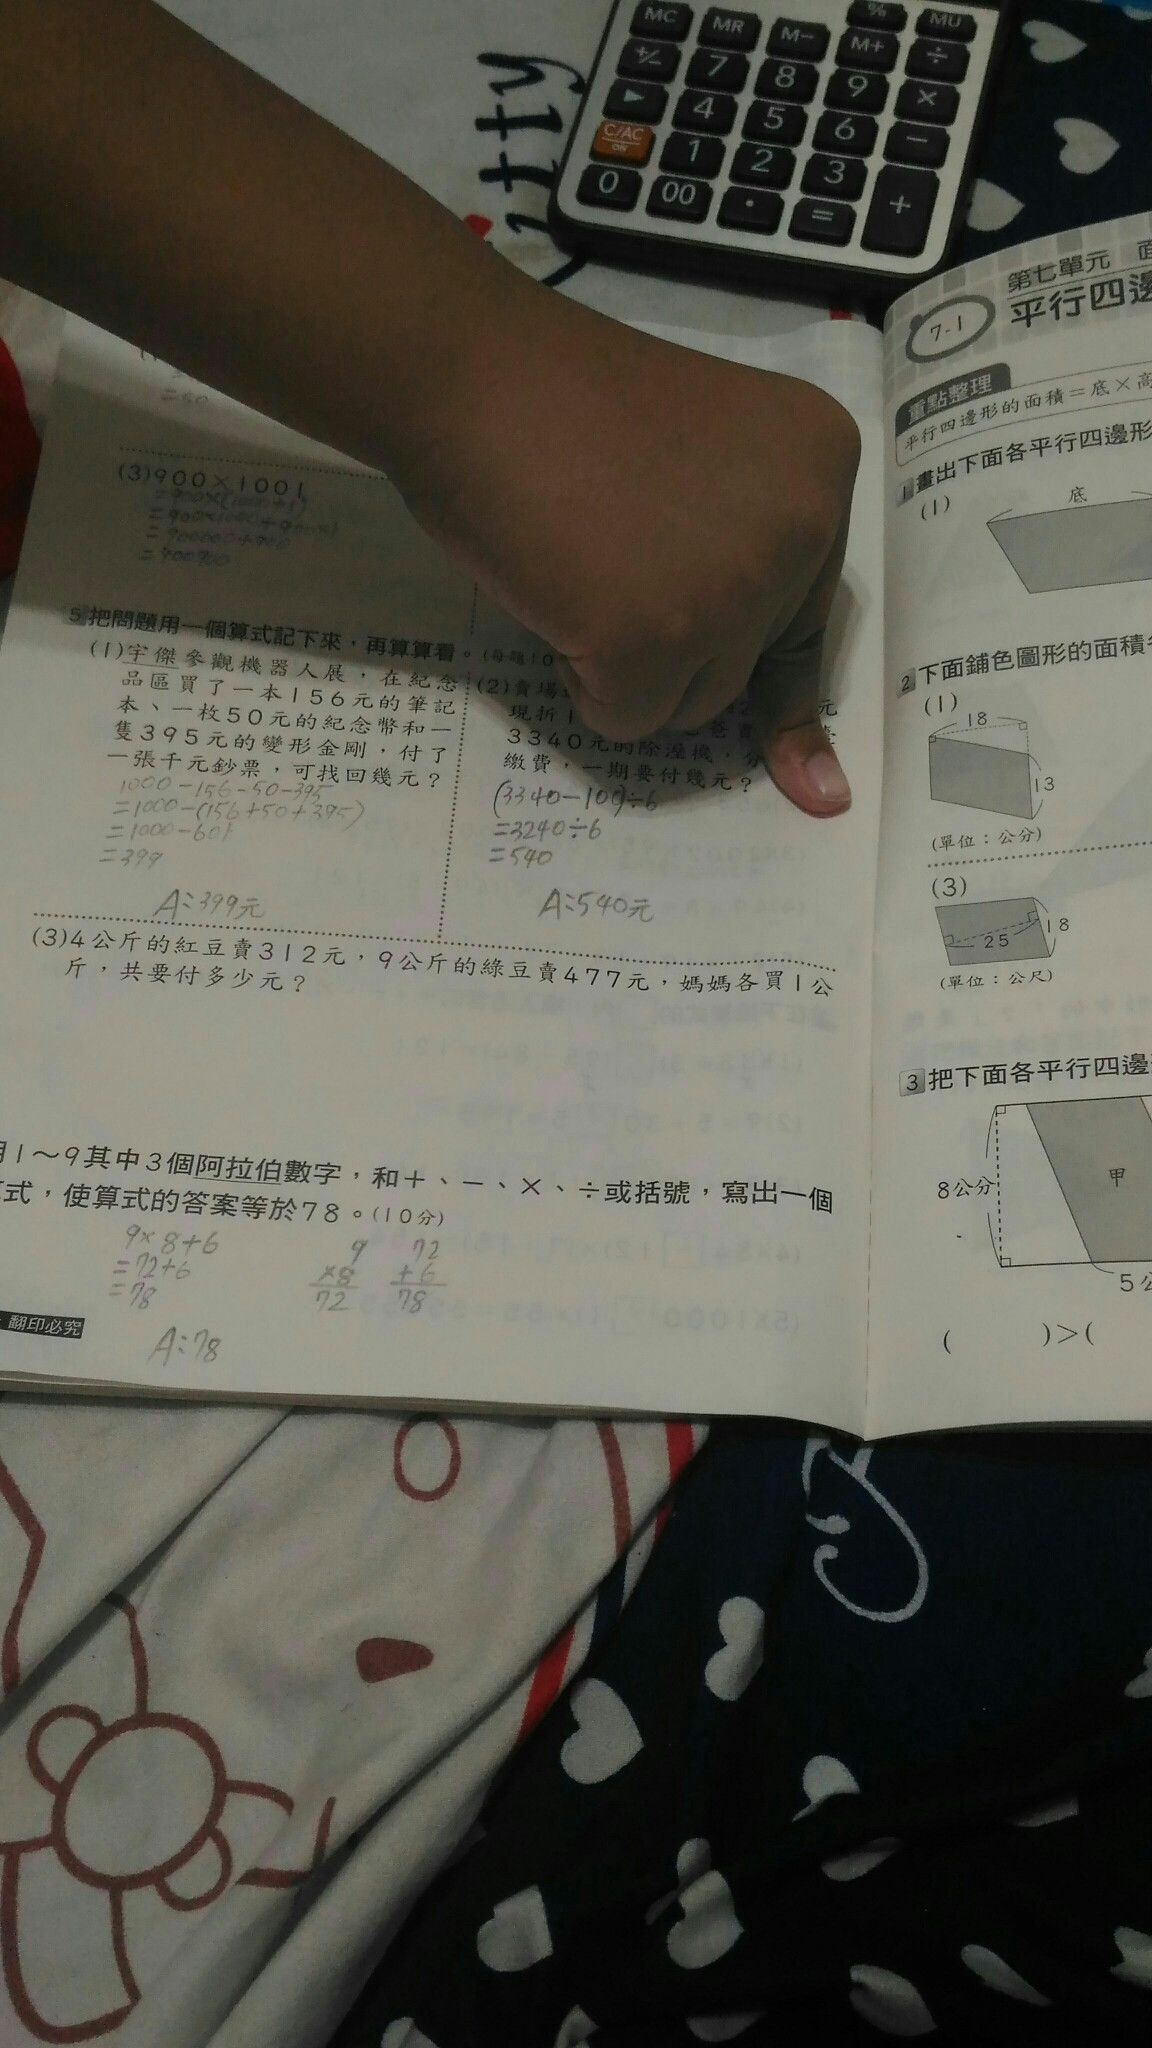 MC MR M- % MU
+/- 7 8 9 M+ ÷
► 4 5 6 ×
C/AC
ON
1 2 3 −
0 00 · = +
tty
=50
(3)900×1001
=900×(1000+1)
=900×1000+900×1
=900000+900
=900900
5 把問題用一個算式記下來，再算算看。
(1)宇傑參觀機器人展，在紀念
品區買了一本156元的筆記
本、一枚50元的紀念幣和一
隻395元的變形金剛，付了
一張千元鈔票，可找回幾元？
1000-156-50-395
=1000-(156+50+395)
=1000-601
=399
A:399元
(2)賣場
現折1
3340元的除溼機，分
繳費，一期要付幾元？
(3340-100)÷6
=3240÷6
=540
A:540元
(3)4公斤的紅豆賣312元，9公斤的綠豆賣477元，媽媽各買1公
斤，共要付多少元？
用1～9其中3個阿拉伯數字，和＋、－、×、÷或括號，寫出一個
式，使算式的答案等於78。(10分)
9×8+6
=72+6
=78
9
×8
72
72
+6
78
A:78
翻印必究
第七單元 面
7-1
平行四邊
重點整理
平行四邊形的面積＝底×高
1 畫出下面各平行四邊形
(1)
底
2 下面鋪色圖形的面積
(1)
18
13
(單位：公分)
(3)
25
18
(單位：公尺)
3 把下面各平行四邊
8公分
甲
5公
( )>(